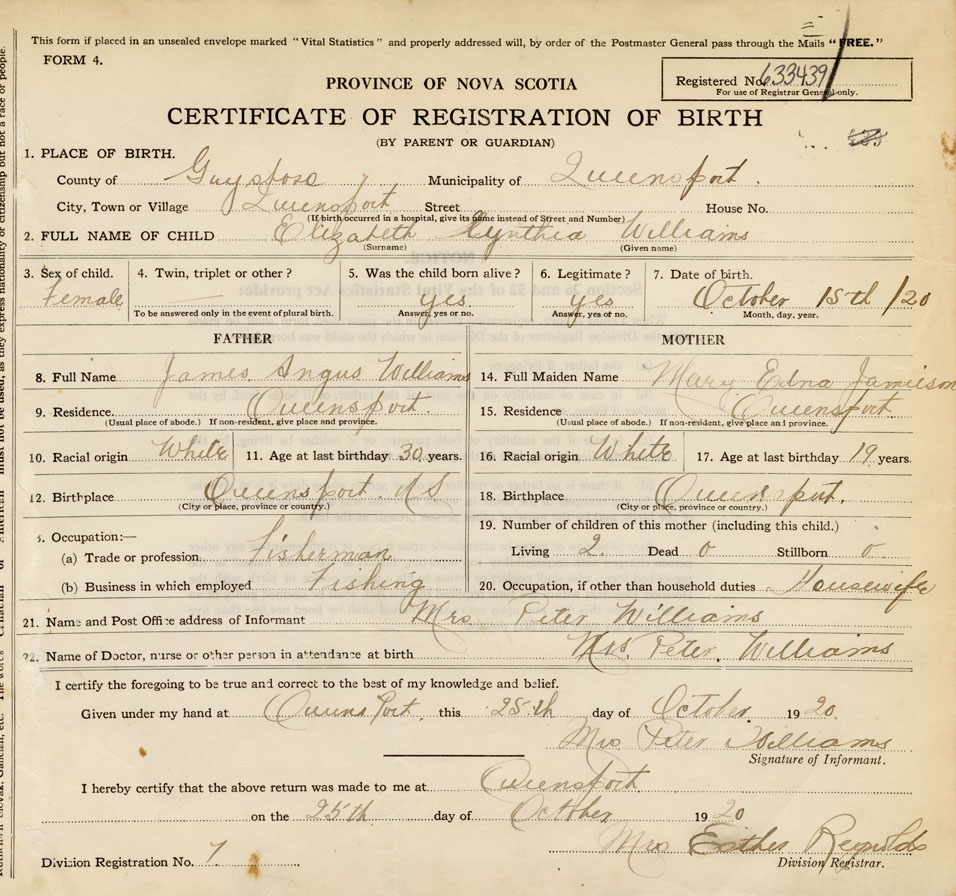 This form if placed in an unsealed envelope marked "Vital Statistics" and properly addressed will, by order of the Postmaster General pass through the Mails "FREE."
FORM 4.
Registered No. 633439
For use of Registrar General only.
PROVINCE OF NOVA SCOTIA
CERTIFICATE OF REGISTRATION OF BIRTH
(BY PARENT OR GUARDIAN)
1. PLACE OF BIRTH.
County of Guysboro Municipality of Queensport.
City, Town or Village Queensport Street House No.
(If birth occurred in a hospital, give its name instead of Street and Number)
2. FULL NAME OF CHILD Elizabeth Cynthia Williams
(Surname) (Given name)
3. Sex of child. 4. Twin, triplet or other? 5. Was the child born alive? 6. Legitimate? 7. Date of birth.
Female yes yes October 15th /20
To be answered only in the event of plural birth. Answer, yes or no. Answer, yes or no. Month, day, year.
FATHER MOTHER
8. Full Name James Angus Williams 14. Full Maiden Name Mary Edna Jamieson
9. Residence. Queensport. 15. Residence Queensport
(Usual place of abode.) If non-resident, give place and province. (Usual place of abode.) If non-resident, give place and province.
10. Racial origin White 11. Age at last birthday 30 years. 16. Racial origin White 17. Age at last birthday 19 years.
12. Birthplace Queensport. NS 18. Birthplace Queensport.
(City or place, province or country.) (City or place, province or country.)
3. Occupation:— 19. Number of children of this mother (including this child.)
(a) Trade or profession Fisherman Living 2. Dead 0 Stillborn 0
(b) Business in which employed Fishing 20. Occupation, if other than household duties Housewife
21. Name and Post Office address of Informant Mrs Peter Williams
22. Name of Doctor, nurse or other person in attendance at birth Mrs. Peter. Williams
I certify the foregoing to be true and correct to the best of my knowledge and belief.
Given under my hand at Queens Port, this 25th day of October 1920.
Mrs Peter Williams
Signature of Informant.
I hereby certify that the above return was made to me at Queensport
on the 25th day of October 1920
Mrs Esther Reynolds
Division Registration No. 7. Division Registrar.